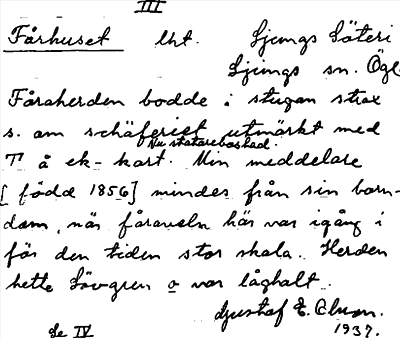 III
Fårhuset lht. Ljungs Säteri
Ljungs sn. Ögl.
Fåraherden bodde i stugan strax
s. om schäferiet utmärkt med
Nu statarebostad.
T å ek-kart. Min meddelare
[född 1856] mindes från sin barn-
dom, när fåraveln här var igång i
för den tiden stor skala. Herden
hette Lövgren o var låghalt.
Gustaf E.
Se IV 1937.